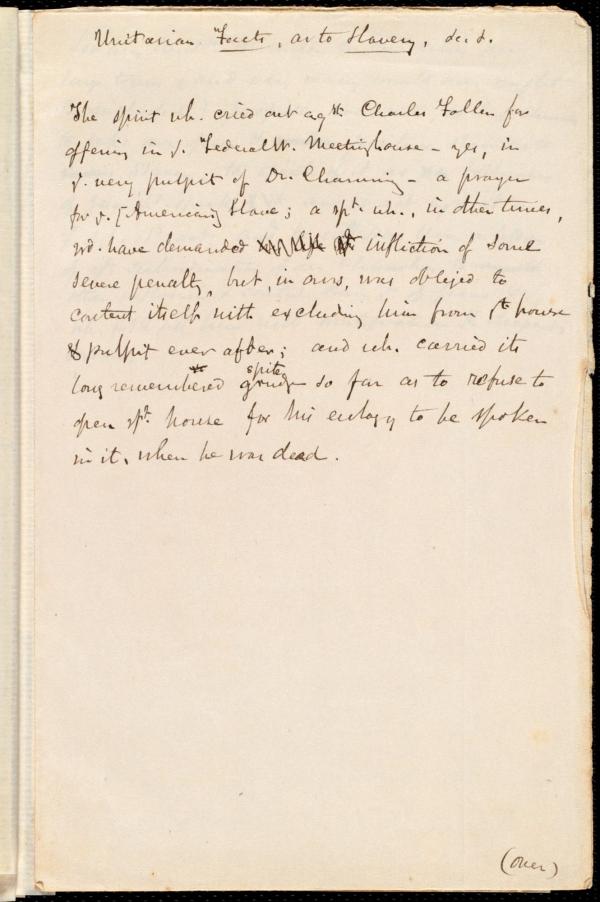 Unitarian Facts, as to Slavery, &c. &.
The spirit wh. cried out agst. Charles Follen for
offering in ye. Federal St. Meetinghouse – yes, in
ye. very pulpit of Dr. Channing – a prayer
for ye. [American] Slave; a spt. wh., in other times,
wd. have demanded infliction of some
severe penalty, but, in ours, was obliged to
content itself with excluding him from yt. house
& pulpit ever after; and wh. carried its
long remembered spite grudge so far as to refuse to
open yt. house for his eulogy to be spoken
in it, when he was dead.
(over)